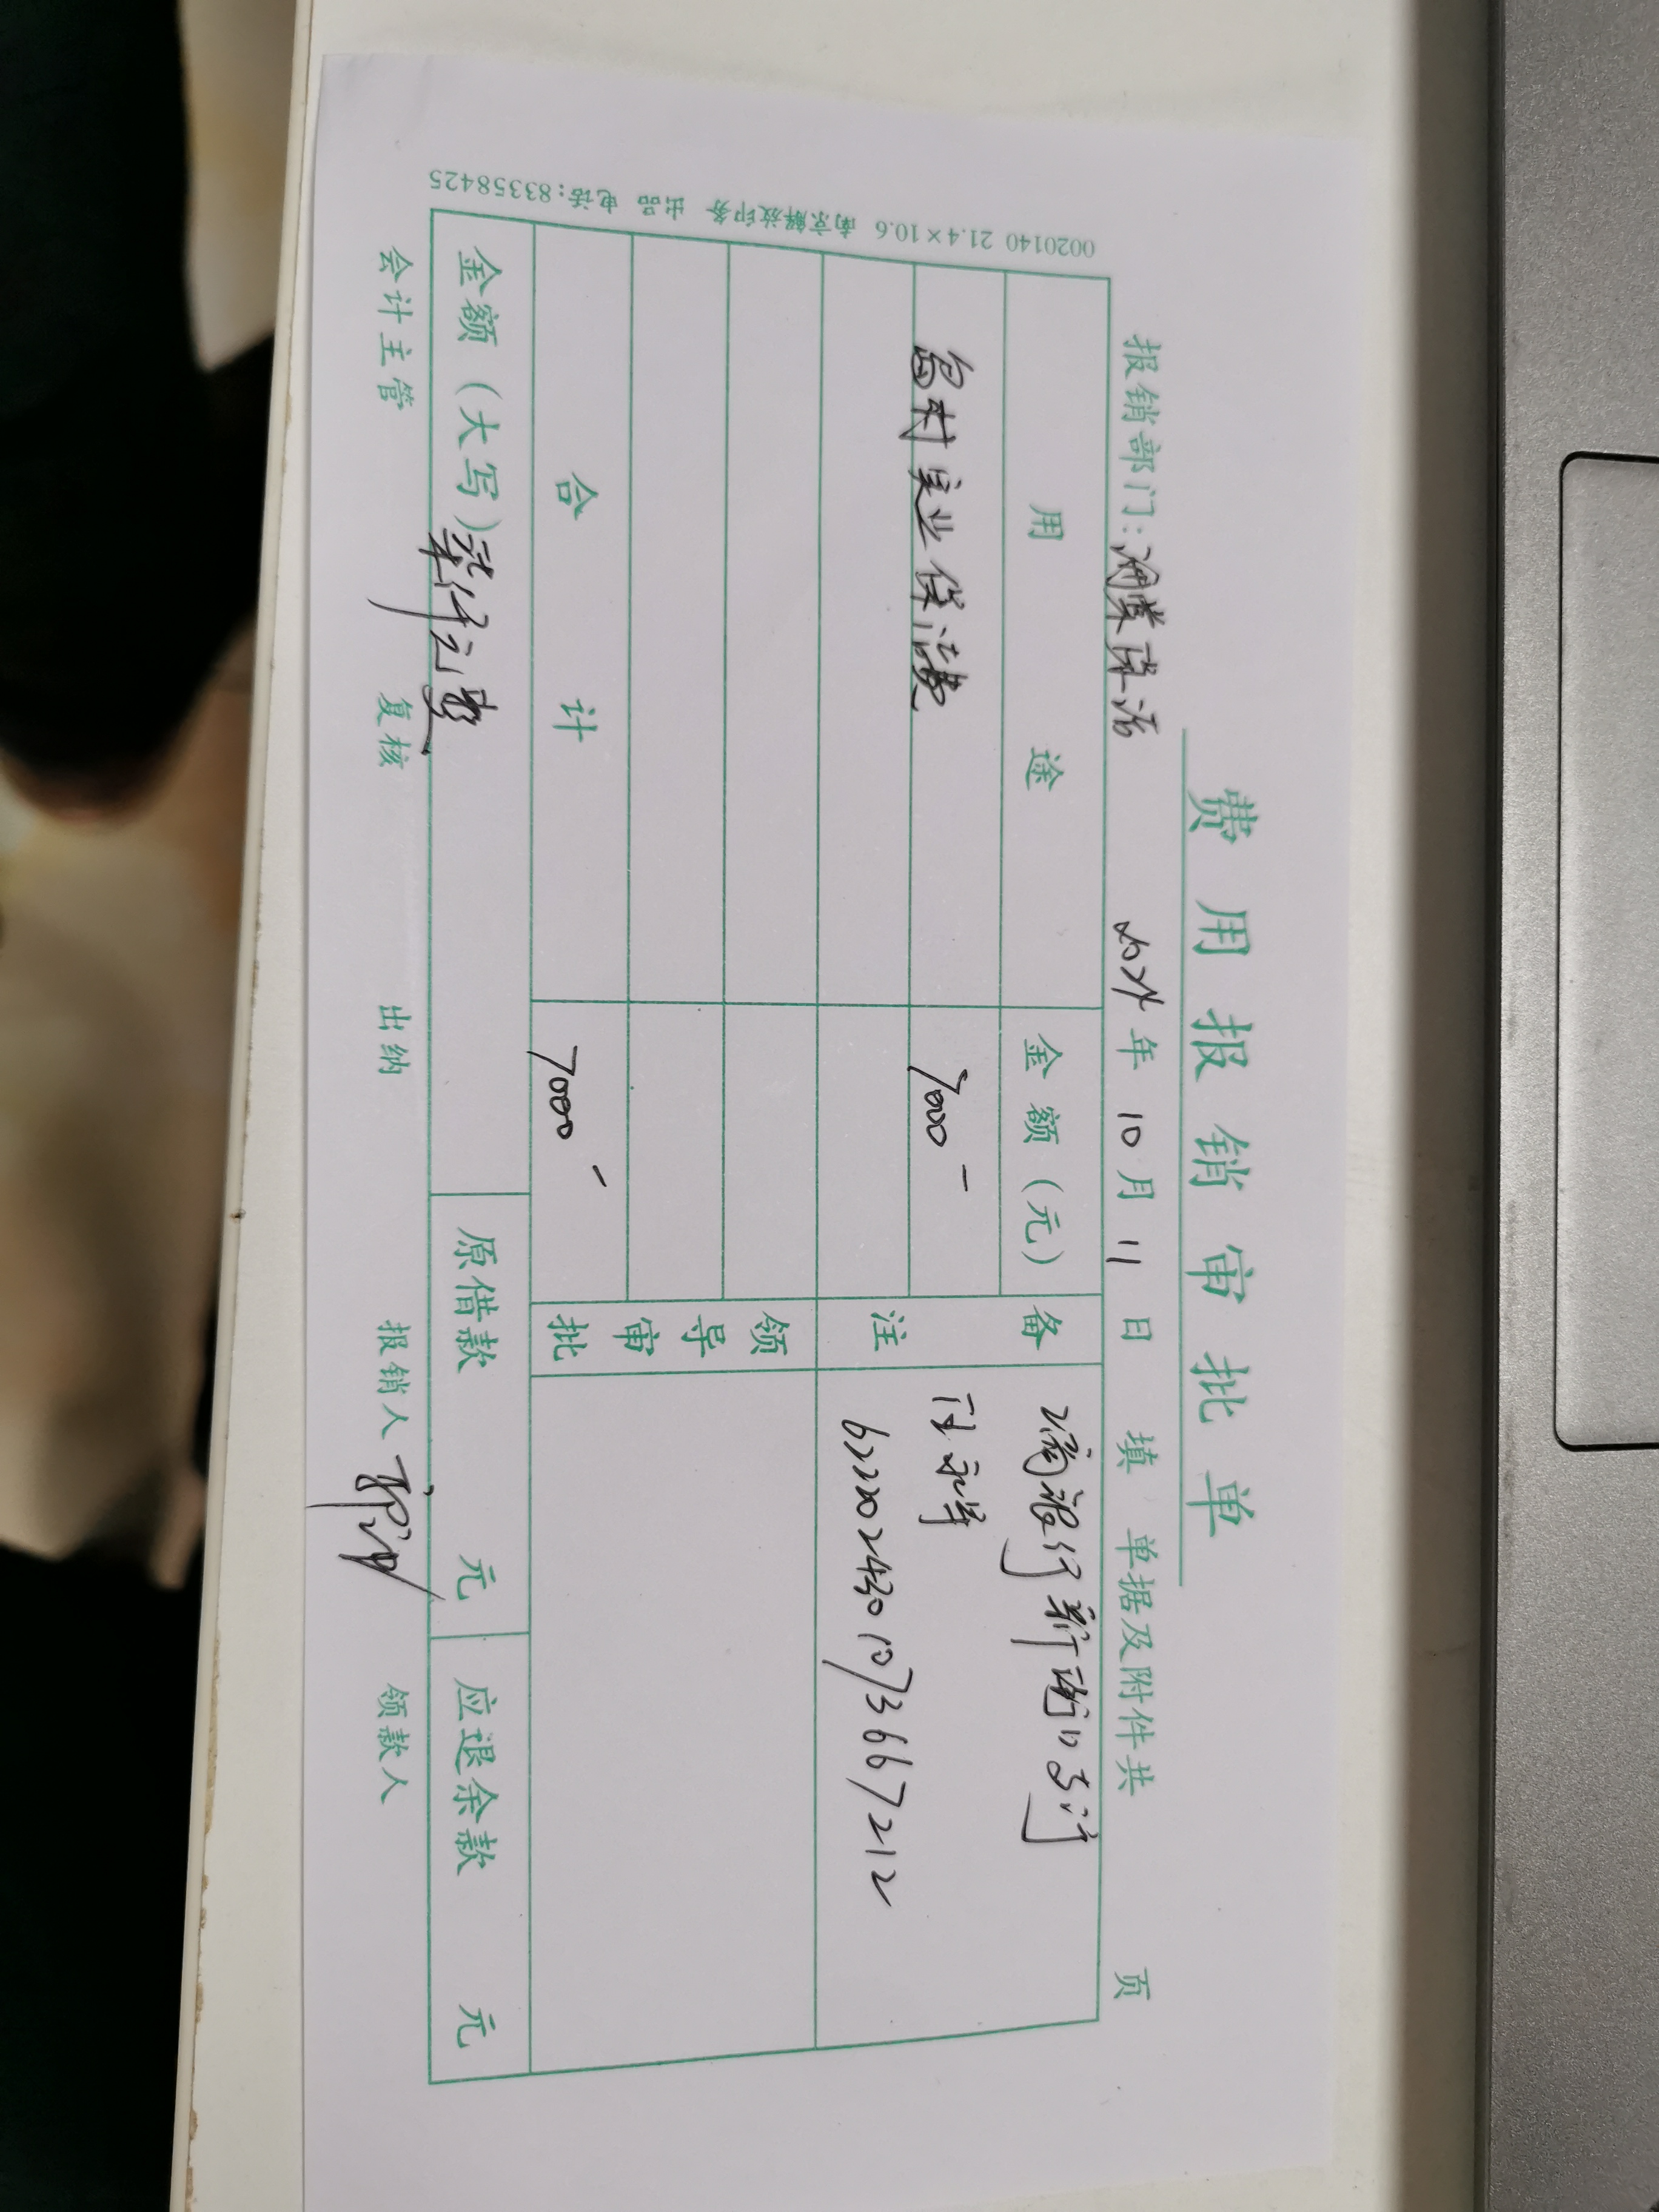 费用报销审批单
报销部门: 2024年10月11日填 单据及附件共 页
用途 金额(元) 备注
岛村实业保洁费 7000-
银行新街口支行
6222024301073667212
合计 7000-
领导审批
金额(大写)柒仟元整 原借款 元 应退余款 元
会计主管 复核 出纳 报销人 领款人
0020140 21.4×10.6 南京解放印务 出品 电话:83358425